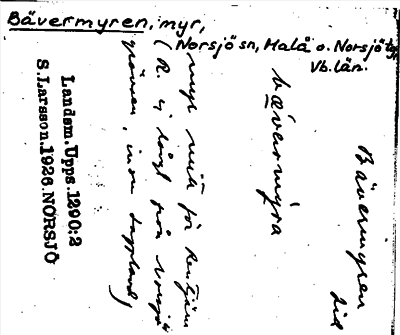 Bävermyren, myr,
Norsjö sn, Malå o. Norsjö tg
Vb. län.
Bävermyren
bävermyra
myr
(R. ej långt från Norsjö
gränsen, inom Lappland)
Landsm. Upps. 1290:2
S. Larsson. 1926. NORSJÖ